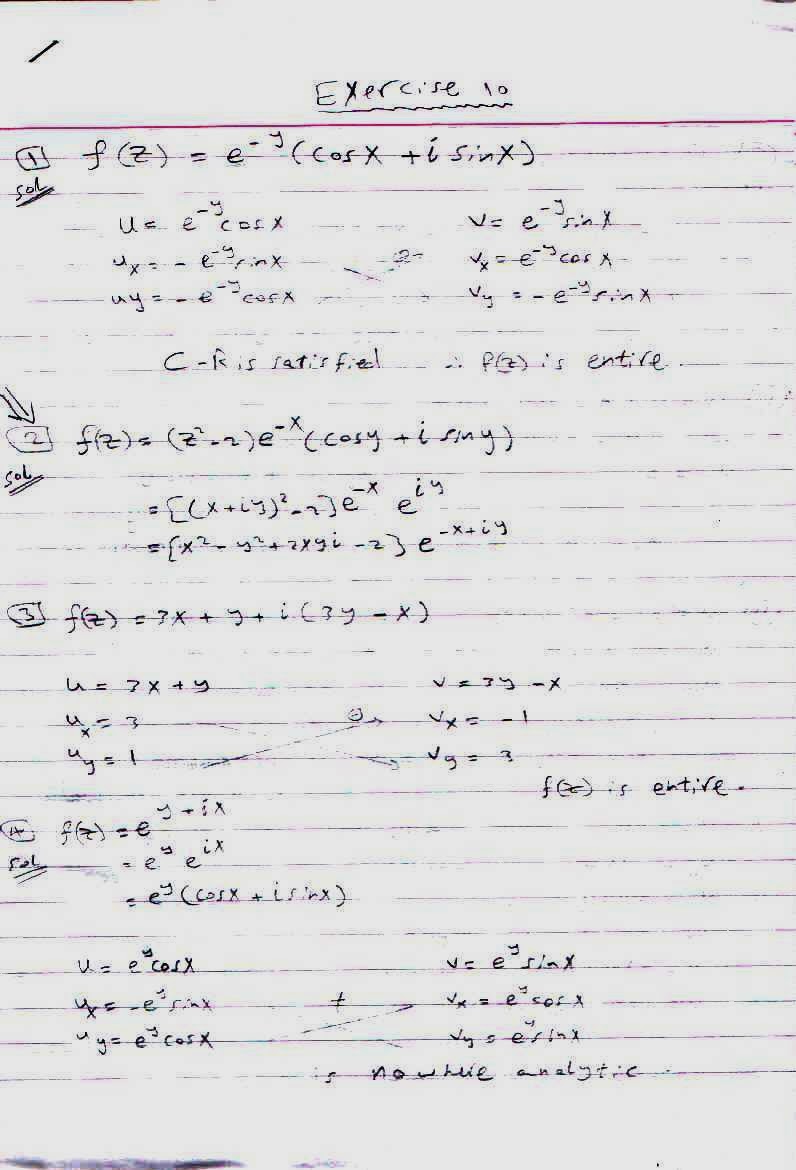 Exercise 10
1 f(z) = e^-y (cosx + i sinx)
sol
u = e^-y cosx v = e^-y sinx
ux = - e^-y sinx vx = e^-y cosx
uy = - e^-y cosx vy = - e^-y sinx
C-R is satisfied ∴ f(z) is entire.
2 f(z) = (z²-2)e^-x (cosy + i siny)
sol
= [(x+iy)²-2]e^-x e^iy
= [x² - y² + 2xyi - 2] e^-x+iy
3 f(z) = 3x + y + i(3y - x)
u = 3x + y v = 3y - x
ux = 3 vx = -1
uy = 1 vy = 3
f(z) is entire.
4 f(z) = e^y+ix
sol = e^y e^ix
= e^y (cosx + i sinx)
u = e^y cosx v = e^y sinx
ux = -e^y sinx ≠ vx = e^y cosx
uy = e^y cosx vy = e^y sinx
is nowhere analytic.